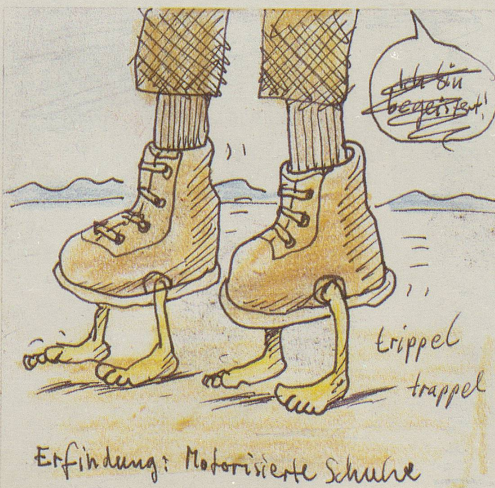 Ich bin
begeistert!
trippel
trappel
Erfindung: Motorisierte Schuhe